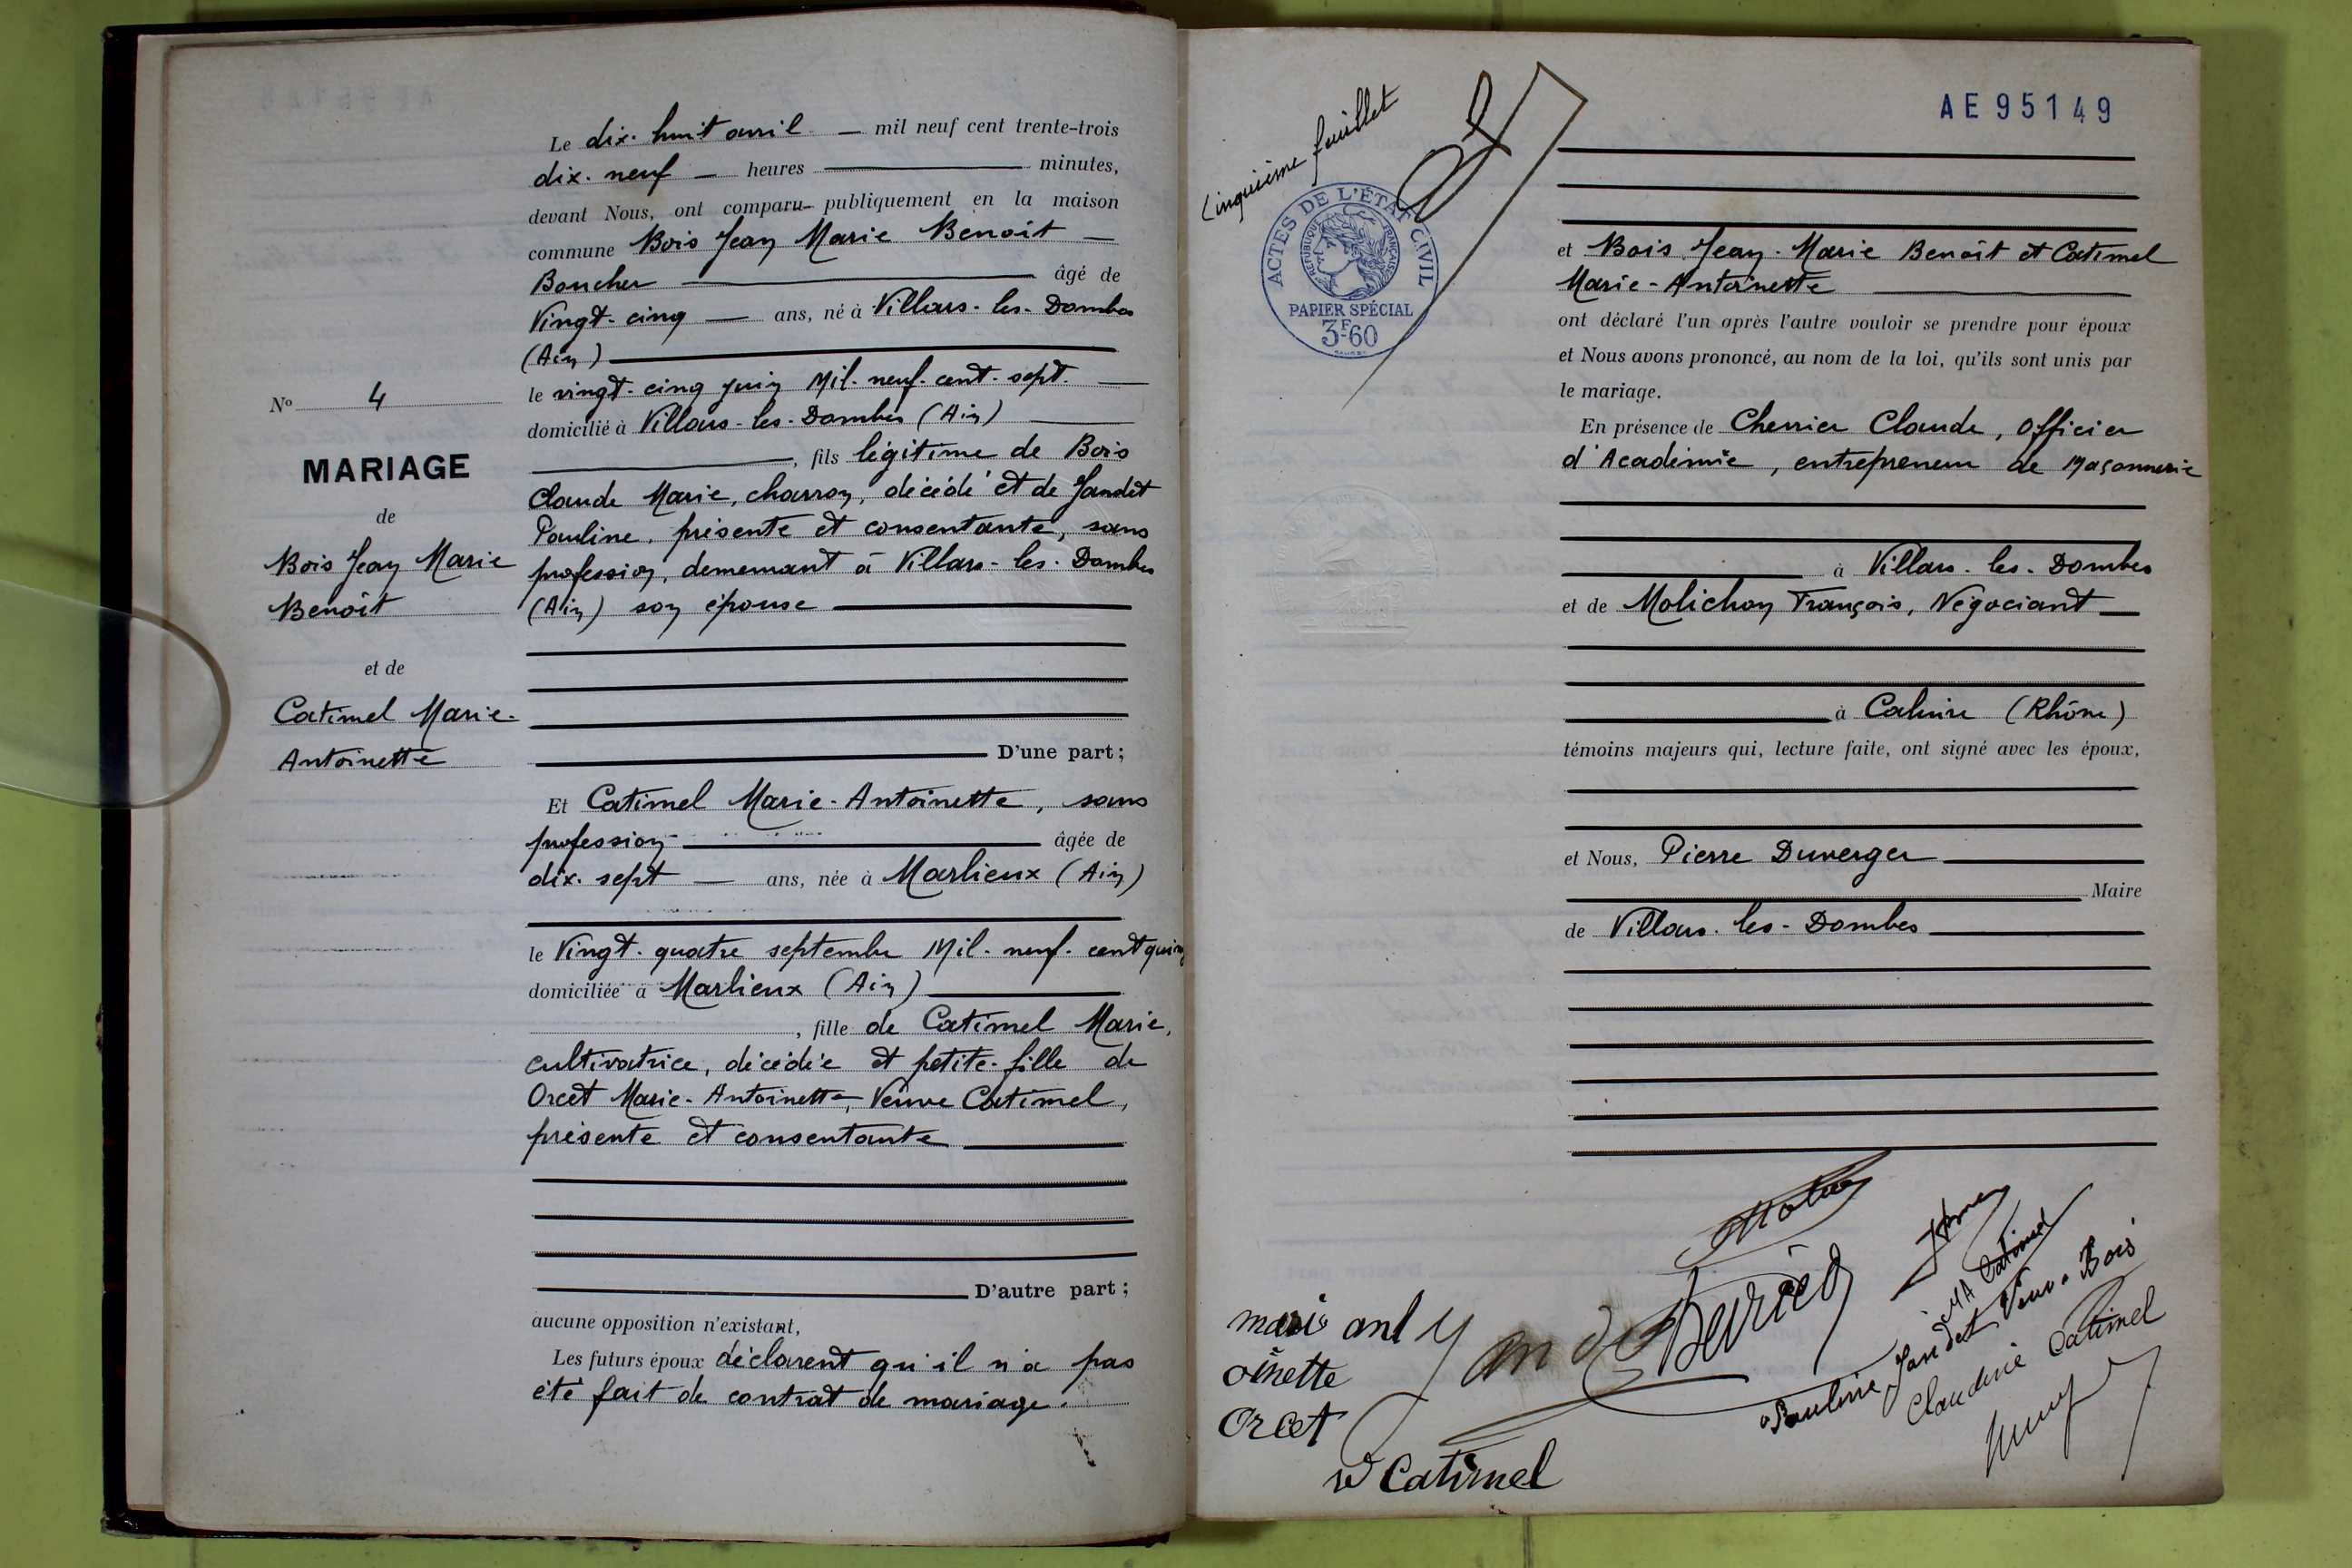 Le dix-huit avril — mil neuf cent trente-trois
dix-neuf — heures — minutes,
devant Nous, ont comparu publiquement en la maison
commune Bois Jean Marie Benoît —
Boucher — âgé de
Vingt-cinq — ans, né à Villars-les-Dombes
(Ain)
le vingt-cinq juin Mil-neuf-cent-sept.
domicilié à Villars-les-Dombes (Ain)
, fils légitime de Bois
Claude Marie, charron, décédé et de Jandet
Pauline, présente et consentante, sans
profession, demeurant à Villars-les-Dombes
(Ain) son épouse
D'une part;
Nº 4
MARIAGE
de
Bois Jean Marie
Benoît
et de
Catimel Marie-
Antoinette
Et Catimel Marie-Antoinette, sans
profession — âgée de
dix-sept — ans, née à Marlieux (Ain)
le Vingt-quatre septembre Mil-neuf-cent quinz
domiciliée à Marlieux (Ain)
, fille de Catimel Marie,
cultivatrice, décédée et petite-fille de
Orcet Marie-Antoinette, Veuve Catimel,
présente et consentante
D'autre part;
aucune opposition n'existant,
Les futurs époux déclarent qu'il n'a pas
été fait de contrat de mariage.
Cinquième feuillet
ACTES DE L'ÉTAT CIVIL
RÉPUBLIQUE FRANÇAISE
PAPIER SPÉCIAL
3F60
AE 95149
et Bois Jean-Marie Benoît et Catimel
Marie-Antoinette
ont déclaré l'un après l'autre vouloir se prendre pour époux
et Nous avons prononcé, au nom de la loi, qu'ils sont unis par
le mariage.
En présence de Cherrier Claude, Officier
d'Académie, entrepreneur de Maçonnerie
à Villars-les-Dombes
et de Molichon François, Négociant
à Caluire (Rhône)
témoins majeurs qui, lecture faite, ont signé avec les époux,
et Nous, Pierre Duverger
Maire
de Villars-les-Dombes
M A Catimel
Pauline Jandet Veuve Bois
Claudine Catimel
marie ant
oinette
Orcet
ve Catimel